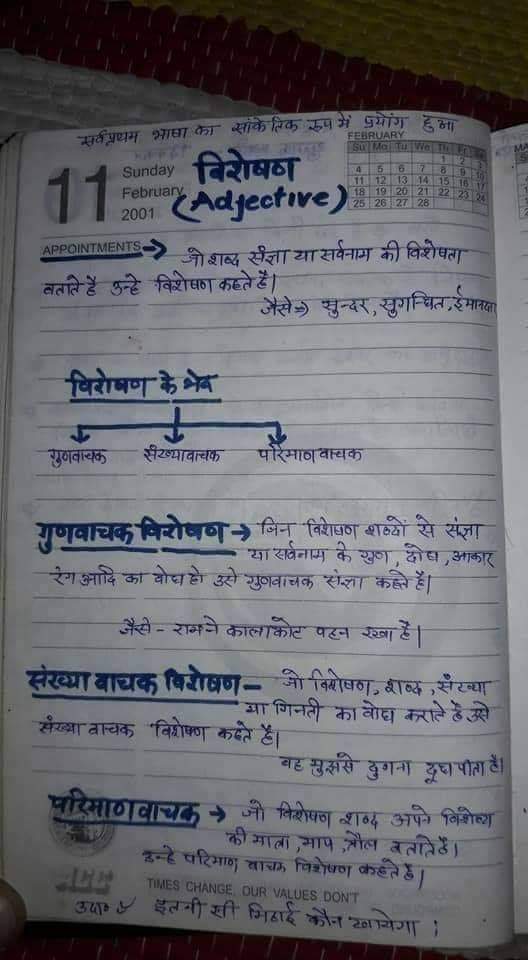 सर्वप्रथम भाषा का सांकेतिक रूप में प्रयोग हुआ
11 Sunday February 2001
विशेषण
(Adjective)
FEBRUARY
Su Mo Tu We Th Fr Sa
1 2 3
4 5 6 7 8 9 10
11 12 13 14 15 16 17
18 19 20 21 22 23 24
25 26 27 28
APPOINTMENTS → जो शब्द संज्ञा या सर्वनाम की विशेषता
बताते है उन्हे विशेषण कहते है।
जैसे⇒ सुन्दर, सुगन्धित, ईमानदार
विशेषण के भेद
गुणवाचक संख्यावाचक परिमाणवाचक
गुणवाचक विशेषण → जिन विशेषण शब्दों से संज्ञा
या सर्वनाम के गुण, दोष, आकार
रंग आदि का बोध हो उसे गुणवाचक संज्ञा कहते है।
जैसे - राम ने काला कोट पहन रखा है।
संख्या वाचक विशेषण – जो विशेषण, शब्द, संख्या
या गिनती का बोध कराते है उसे
संख्या वाचक विशेषण कहते है।
वह मुझसे दुगना दूध पीता है।
परिमाणवाचक → जो विशेषण शब्द अपने विशेष्य
की मात्रा, माप, तौल बताते है।
उन्हे परिमाण वाचक विशेषण कहते है।
TIMES CHANGE, OUR VALUES DON'T
उदा० इतनी सी मिठाई कौन खायेगा ;